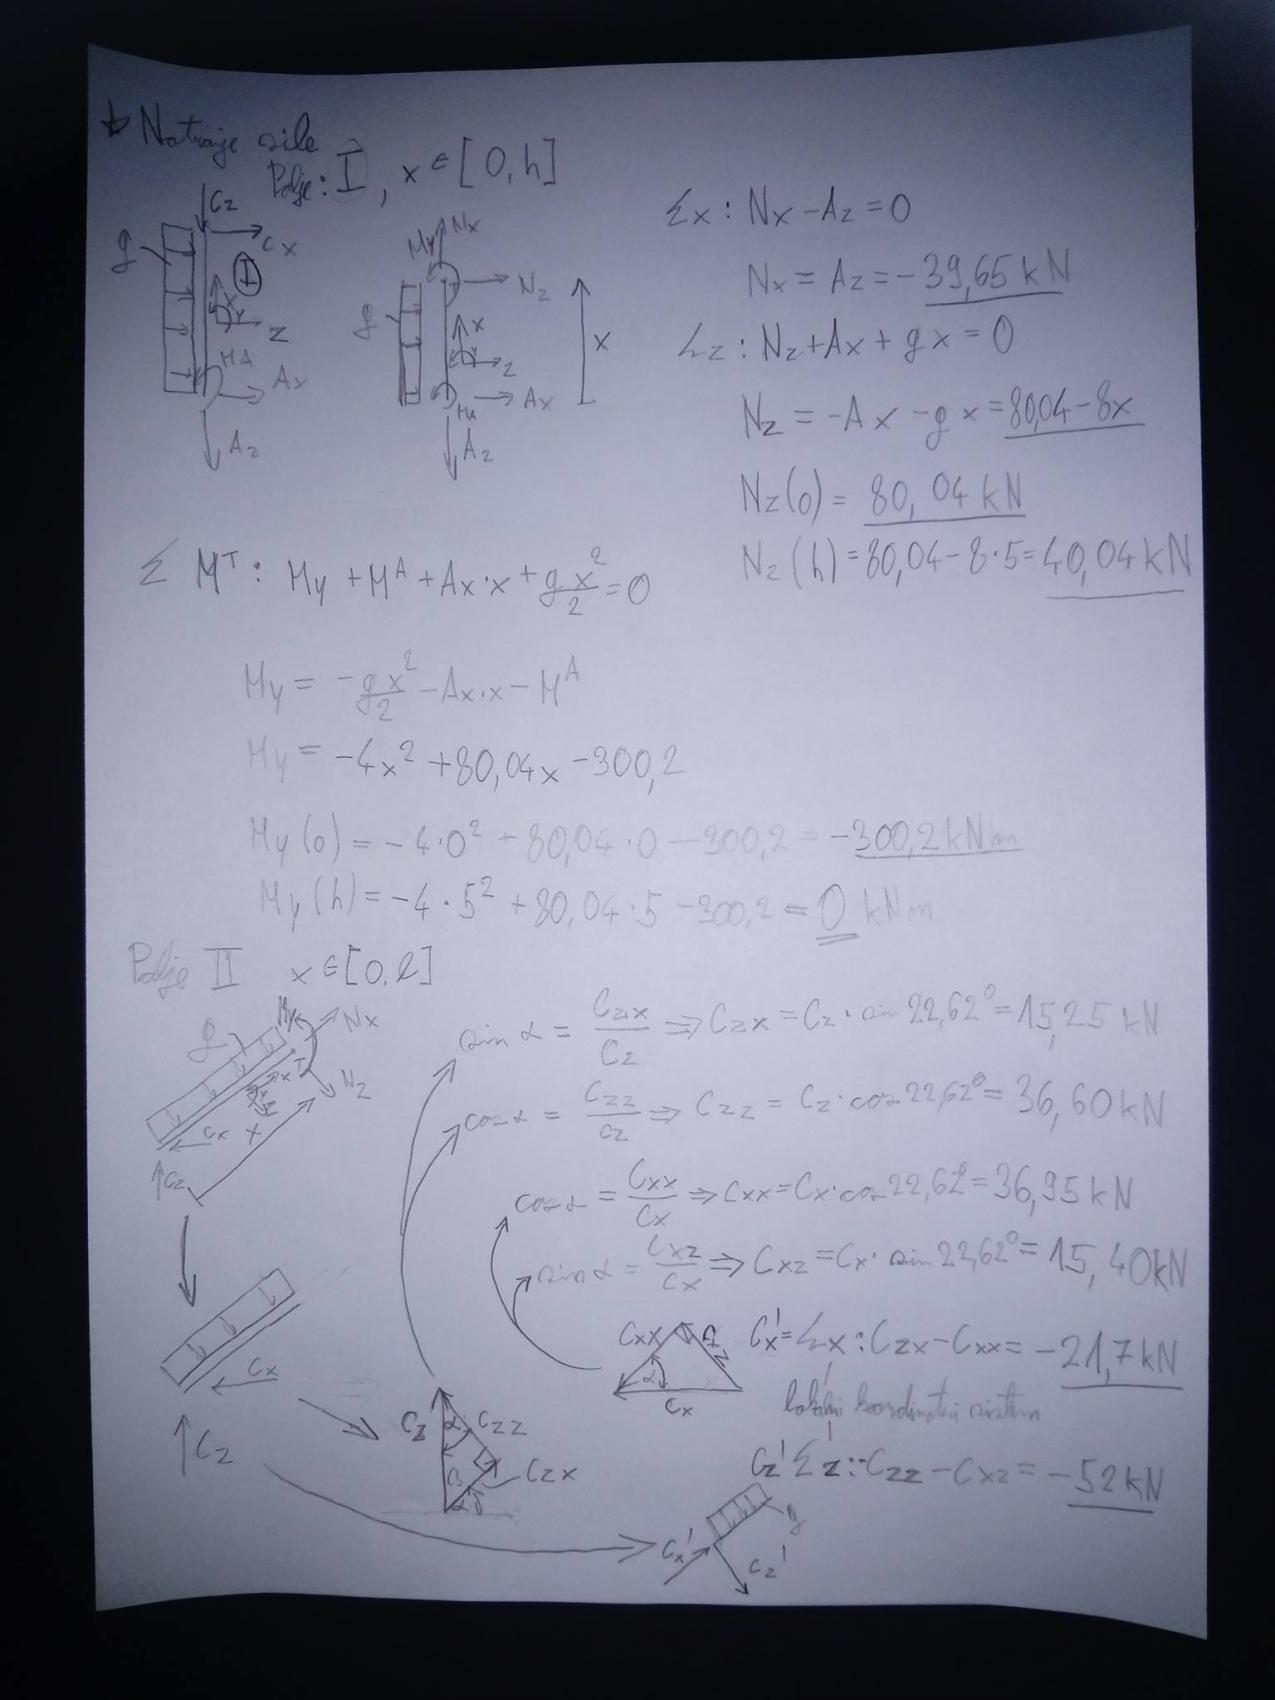 Notranje sile
Polje: I, x ∈ [0, h]
Cz
g
Cx
I
x
y
z
MA
Ax
Az
My
Nx
Nz
g
x
y
z
x
MA
Ax
Az
Σx : Nx - Az = 0
Nx = Az = -39,65 kN
Σz : Nz + Ax + g x = 0
Nz = -Ax - g x = 80,04 - 8x
Nz(0) = 80,04 kN
Nz(h) = 80,04 - 8·5 = 40,04 kN
Σ Mᵀ : My + Mᴬ + Ax·x + g x²/2 = 0
My = -g x²/2 - Ax·x - Mᴬ
My = -4x² + 80,04x - 300,2
My(0) = -4·0² + 80,04·0 - 300,2 = -300,2 kNm
My(h) = -4·5² + 80,04·5 - 300,2 = 0 kNm
Polje II x ∈ [0, l]
g
My
Nx
T
x
Nz
Cx
x
Cz
sin α = Czx/Cz ⇒ Czx = Cz · sin 22,62° = 15,25 kN
cos α = Czz/Cz ⇒ Czz = Cz · cos 22,62° = 36,60 kN
cos α = Cxx/Cx ⇒ Cxx = Cx · cos 22,62° = 36,95 kN
sin α = Cxz/Cx ⇒ Cxz = Cx · sin 22,62° = 15,40 kN
Cxx
α
Cx
Cx' = Σx : Czx - Cxx = -21,7 kN
lokalni koordinatni sistem
Cz' Σz : -Czz - Cxz = -52 kN
Cx
Cz
Cz
α
Czz
β
Czx
α
g
Cx'
Cz'